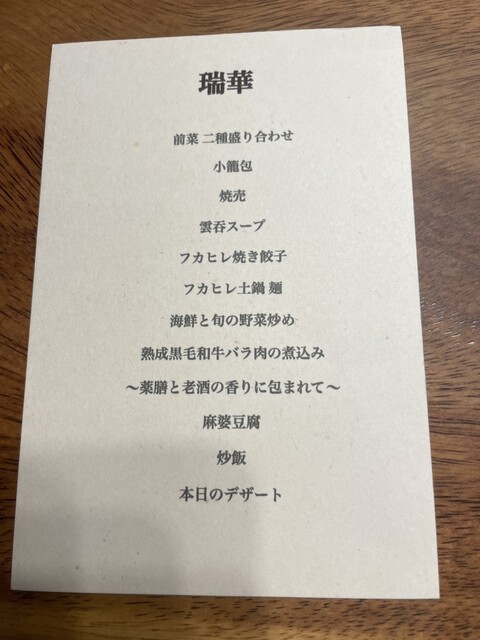 瑞華
前菜 二種盛り合わせ
小籠包
焼売
雲呑スープ
フカヒレ焼き餃子
フカヒレ土鍋 麺
海鮮と旬の野菜炒め
熟成黒毛和牛バラ肉の煮込み
〜薬膳と老酒の香りに包まれて〜
麻婆豆腐
炒飯
本日のデザート